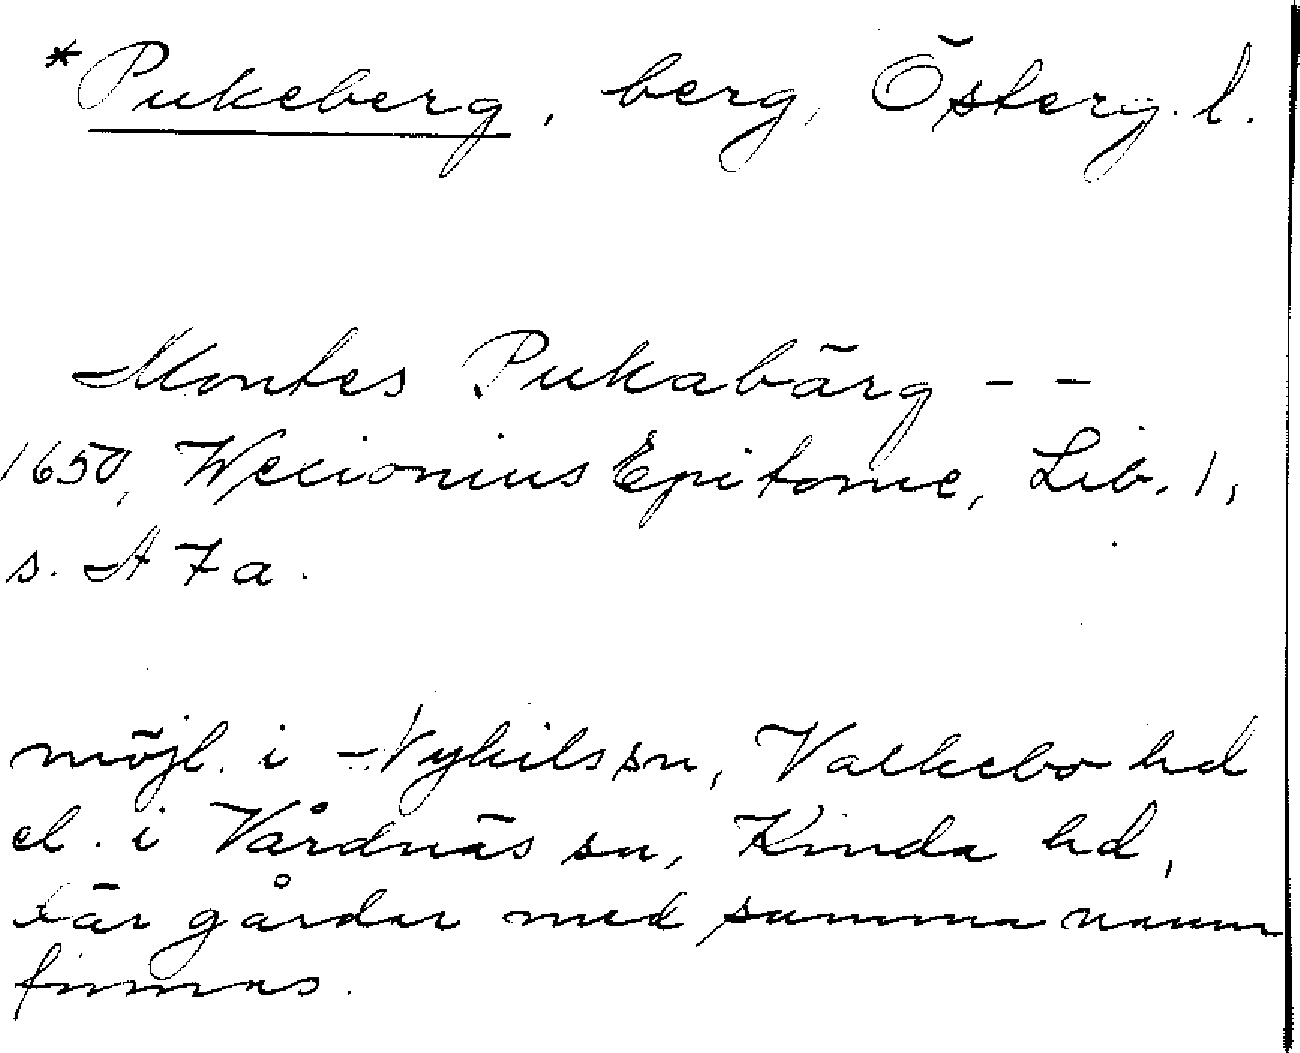 *Pukeberg, berg, Österg. l.
Montes Pukabärg - -
1650, Wexionius Epitome, Lib. 1,
s. A 7 a.
möjl. i Nykils sn, Valkebo hd
el. i Vårdnäs sn, Kinda hd,
där gårdar med samma namn
finnas.